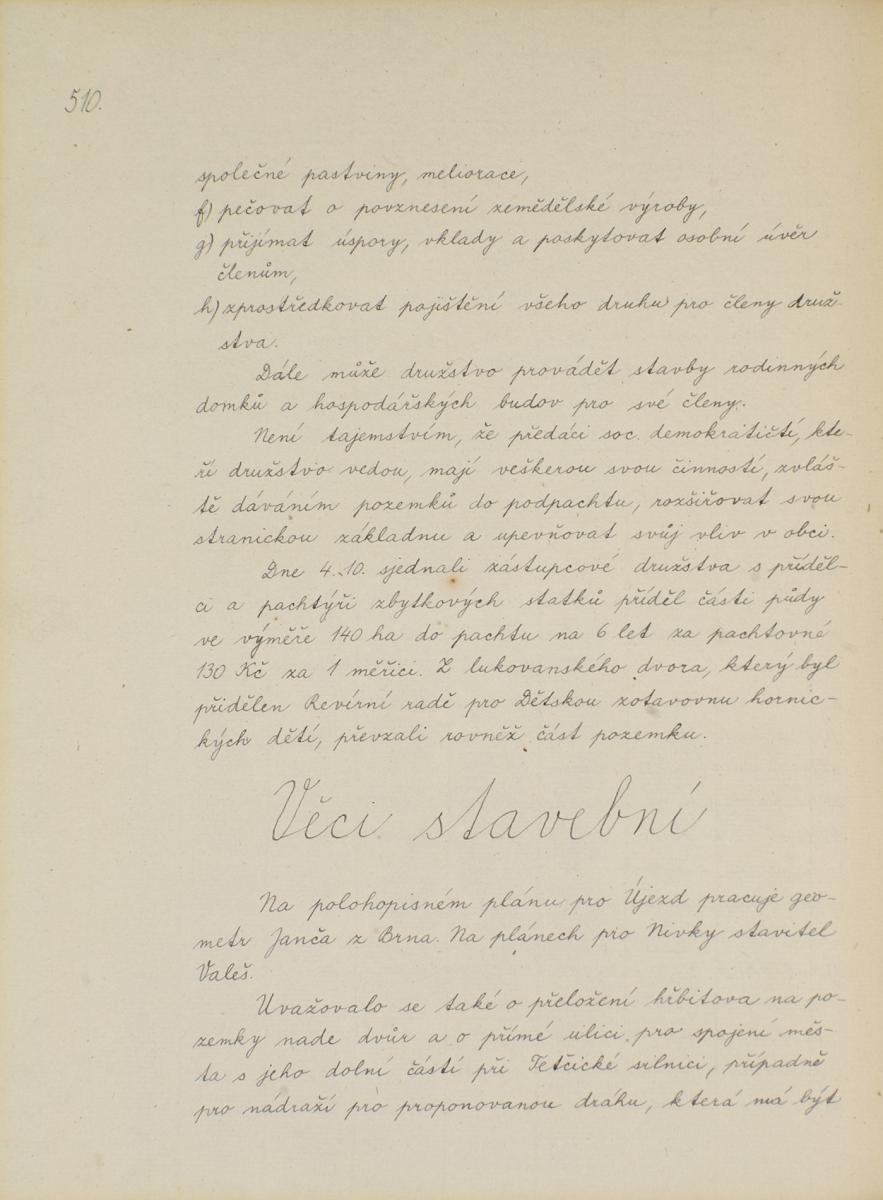 510.
společné pastviny, meliorace,
f) pečovat o povznesení zemědělské výroby,
g) přijímat úspory, vklady a poskytovat osobní úvěr
členům,
h) zprostředkovat pojištění všeho druhu pro členy druž-
stva.
Dále může družstvo provádět stavby rodinných
domků a hospodářských budov pro své členy.
Není tajemstvím, že předáci soc. demokratičtí, kte-
ří družstvo vedou, mají veškerou svou činností, zvláš-
tě dáváním pozemků do podpachtu, rozšiřovat svou
stranickou základnu a upevňovat svůj vliv v obci.
Dne 4. 10. sjednali zástupcové družstva s příděl-
ci a pachtýři zbytkových statků příděl části půdy
ve výměře 140 ha do pachtu na 6 let za pachtovné
130 Kč za 1 měřici. Z lukovanského dvora, který byl
přidělen Revírní radě pro Dětskou zotavovnu hornic-
kých dětí, převzali rovněž část pozemku.
Věci stavební
Na polohopisném plánu pro Újezd pracuje geo-
metr Janča z Brna. Na plánech pro Nivky stavitel
Valeš.
Uvažovalo se také o přeložení hřbitova na po-
zemky nade dvůr a o přímé ulici pro spojení měs-
ta s jeho dolní částí při Tetčické silnici, případně
pro nádraží pro proponovanou dráhu, která má být